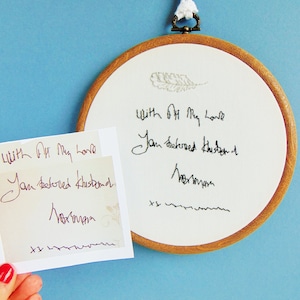 With All My Love
Your beloved Husband
Norman
xx
With All My Love
Your beloved Husband
Norman
xx